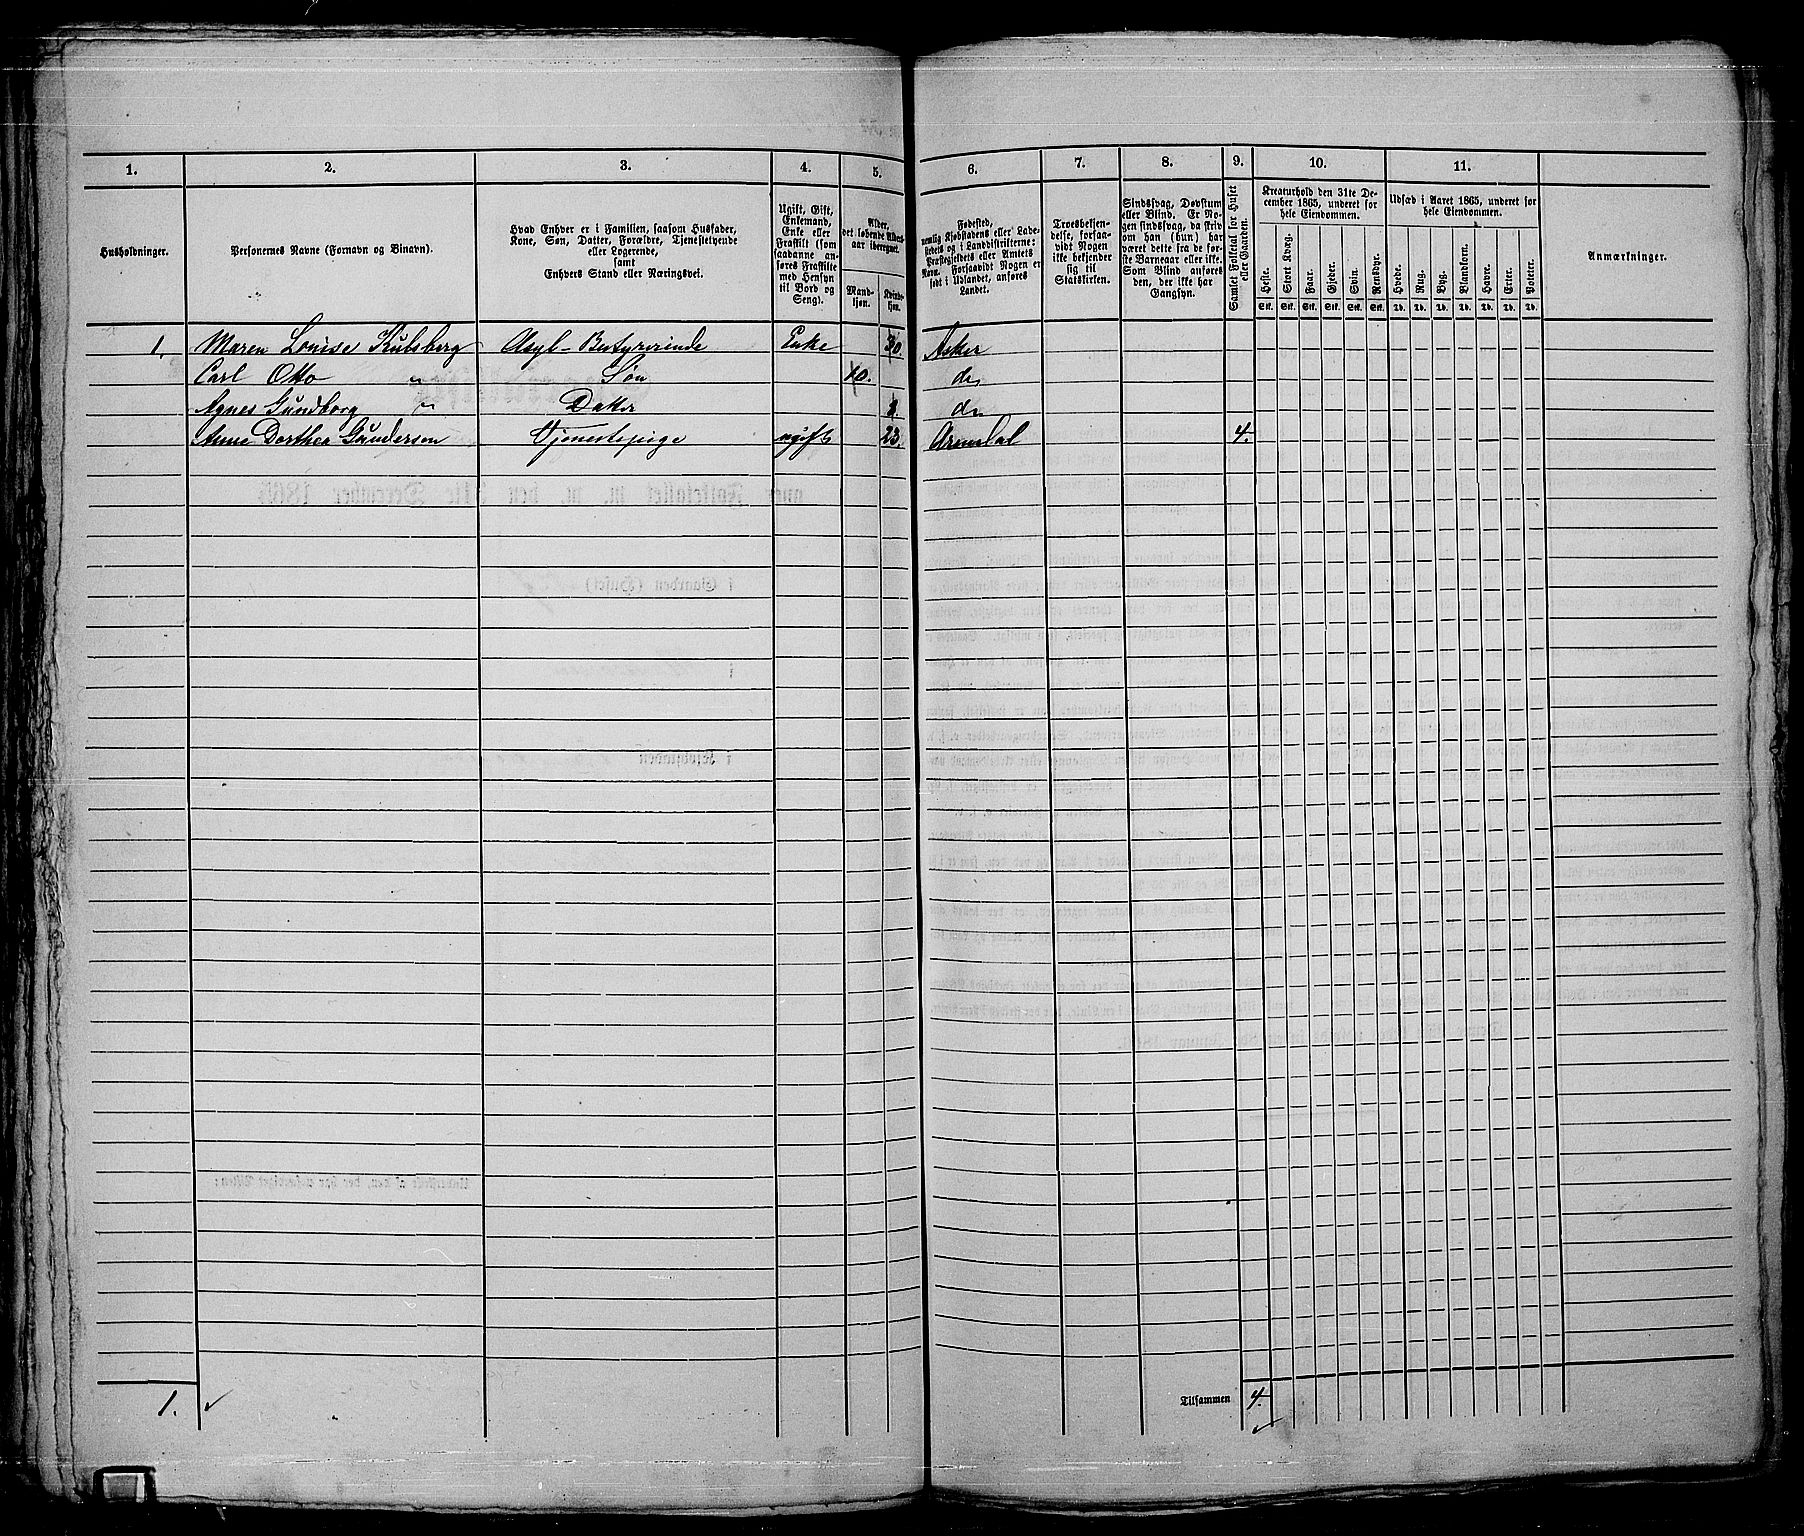 1.
2.
3.
4.
5.
6.
7.
8.
9.
10.
11.
Husholdninger.
Personernes Navne (Fornavn og Binavn).
Hvad Enhver er i Familien, saasom Husfader,
Kone, Søn, Datter, Forældre, Tjenestetyende
eller Logerende,
samt
Enhvers Stand eller Næringsvei.
Ugift, Gift,
Enkemand,
Enke eller
Fraskilt (som
saadanne an-
føres Fraskilte
med Hensyn
til Bord og
Seng).
Alder,
det løbende Alders-
aar iberegnet.
Mand-
kjøn.
Kvinde-
kjøn.
Fødested,
nemlig Kjøbstadens eller Lade-
stedets og i Landdistrikterne:
Præstegjeldets eller Amtets
Navn. Forsaavidt Nogen er
født i Udlandet, anføres
Landet.
Troesbekjen-
delse, forsaa-
vidt Nogen
ikke bekjender
sig til
Statskirken.
Sindssvag, Døvstum
eller Blind. Er No-
gen sindssvag, da skriv
om han (hun) har
været dette fra de før-
ste Barneaar eller ikke.
Som Blind anføres
den, der ikke har
Gangsyn.
Samlet Folketal for Huset
eller Gaarden.
Kreaturhold den 31te De-
cember 1865, underet for
hele Eiendommen.
Heste.
Stort Kvæg.
Faar.
Gjeder.
Svin.
Rensdyr.
Stk. Stk. Stk. Stk. Stk. Stk.
Udsæd i Aaret 1865, underet for
hele Eiendommen.
Hvede.
Rug.
Byg.
Blandkorn.
Havre.
Erter.
Poteter.
Td. Td. Td. Td. Td. Td. Td.
Anmærkninger.
1. Maren Louise Kulsberg Asyl-Bestyrerinde Enke 30. Asker
Carl Otto " Søn 10. do
Agnes Gundborg " Datter do
Anne Dorthea Gundersen Tjenestepige ugift 23. Arendal 4.
1.
Tilsammen 4.